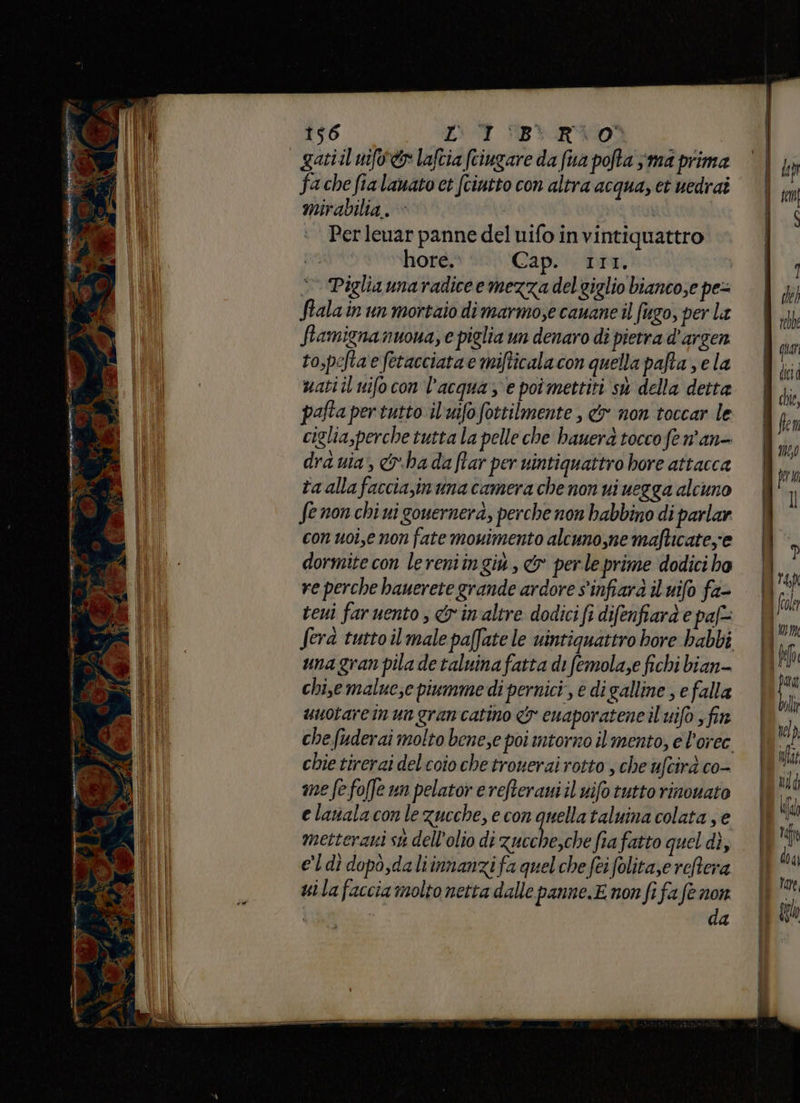 156 LIBRO
gatiil uiſo & laſcia ſciugare da ſua poſta, ma prima
fa che ſia lauato et ſciutto con altra acqua, et uedrai
mirabilia.
Per leuar panne del uiſo in vintiquattro
hore. Cap. III.
Piglia una radice e mezza del giglio bianco, e pe=
ſtala in un mortaio di marmo, e cauane il ſugo, per la
ſtamigna nuoua, e piglia un denaro di pietra d'argen
to, peſta e ſetacciata e miſticala con quella paſta, e la
uati il uiſo con l'acqua, e poi mettiti sù della detta
paſta per tutto il uiſo ſottilmente, & non toccar le
ciglia, perche tutta la pelle che hauerà tocco ſe n'an-
drà uia, & ha da ſtar per uintiquattro hore attacca
ta alla faccia, in una camera che non ui uegga alcuno
ſe non chi ui gouernerà, perche non habbino di parlar
con uoi, e non fate mouimento alcuno, ne maſticate, e
dormite con le reni in giù, & per le prime dodici ho
re perche hauerete grande ardore s'infiarà il uiſo fa-
teui far uento, & in altre dodici ſi diſenfiarà e paſ=
ſerà tutto il male paſſate le uintiquattro hore habbi
una gran pila de taluina fatta di ſemola, e fichi bian-
chi, e malue, e piumme di pernici, e di galline, e falla
uuotare in un gran catino & euaporatene il uiſo, fin
che ſuderai molto bene, e poi intorno il mento, e l'orec
chie tirerai del coio che trouerai rotto, che uſcirà co-
me ſe foſſe un pelator e reſteraui il uiſo tutto rinouato
e lauala con le zucche, e con quella taluina colata, e
metteraui sù dell'olio di zucche, che ſia fatto quel dì,
e'l dì dopò, da li innanzi fa quel che ſei ſolita, e reſtera
ui la faccia molto netta dalle panne. E non ſi fa ſe non
da